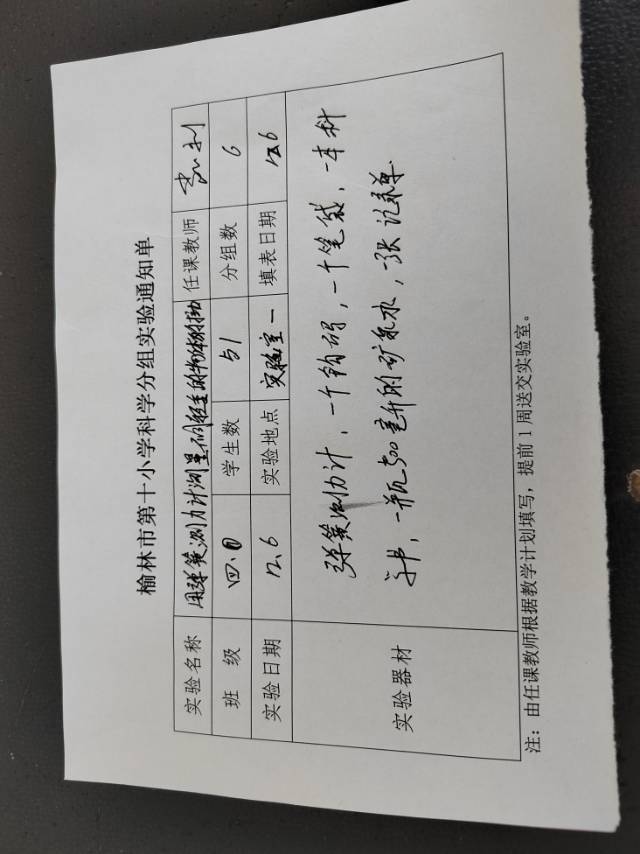 榆林市第十小学科学分组实验通知单
实验名称 用弹簧测力计测量不同轻重的物体 任课教师
班 级 四. 学生数 51 分组数 6
实验日期 12.6 实验地点 实验室一 填表日期 12.6
实验器材 弹簧测力计,一个钩码,一个笔袋,一本科
学书,一瓶500毫升的矿泉水,一张记录单
注:由任课教师根据教学计划填写,提前1周送交实验室。